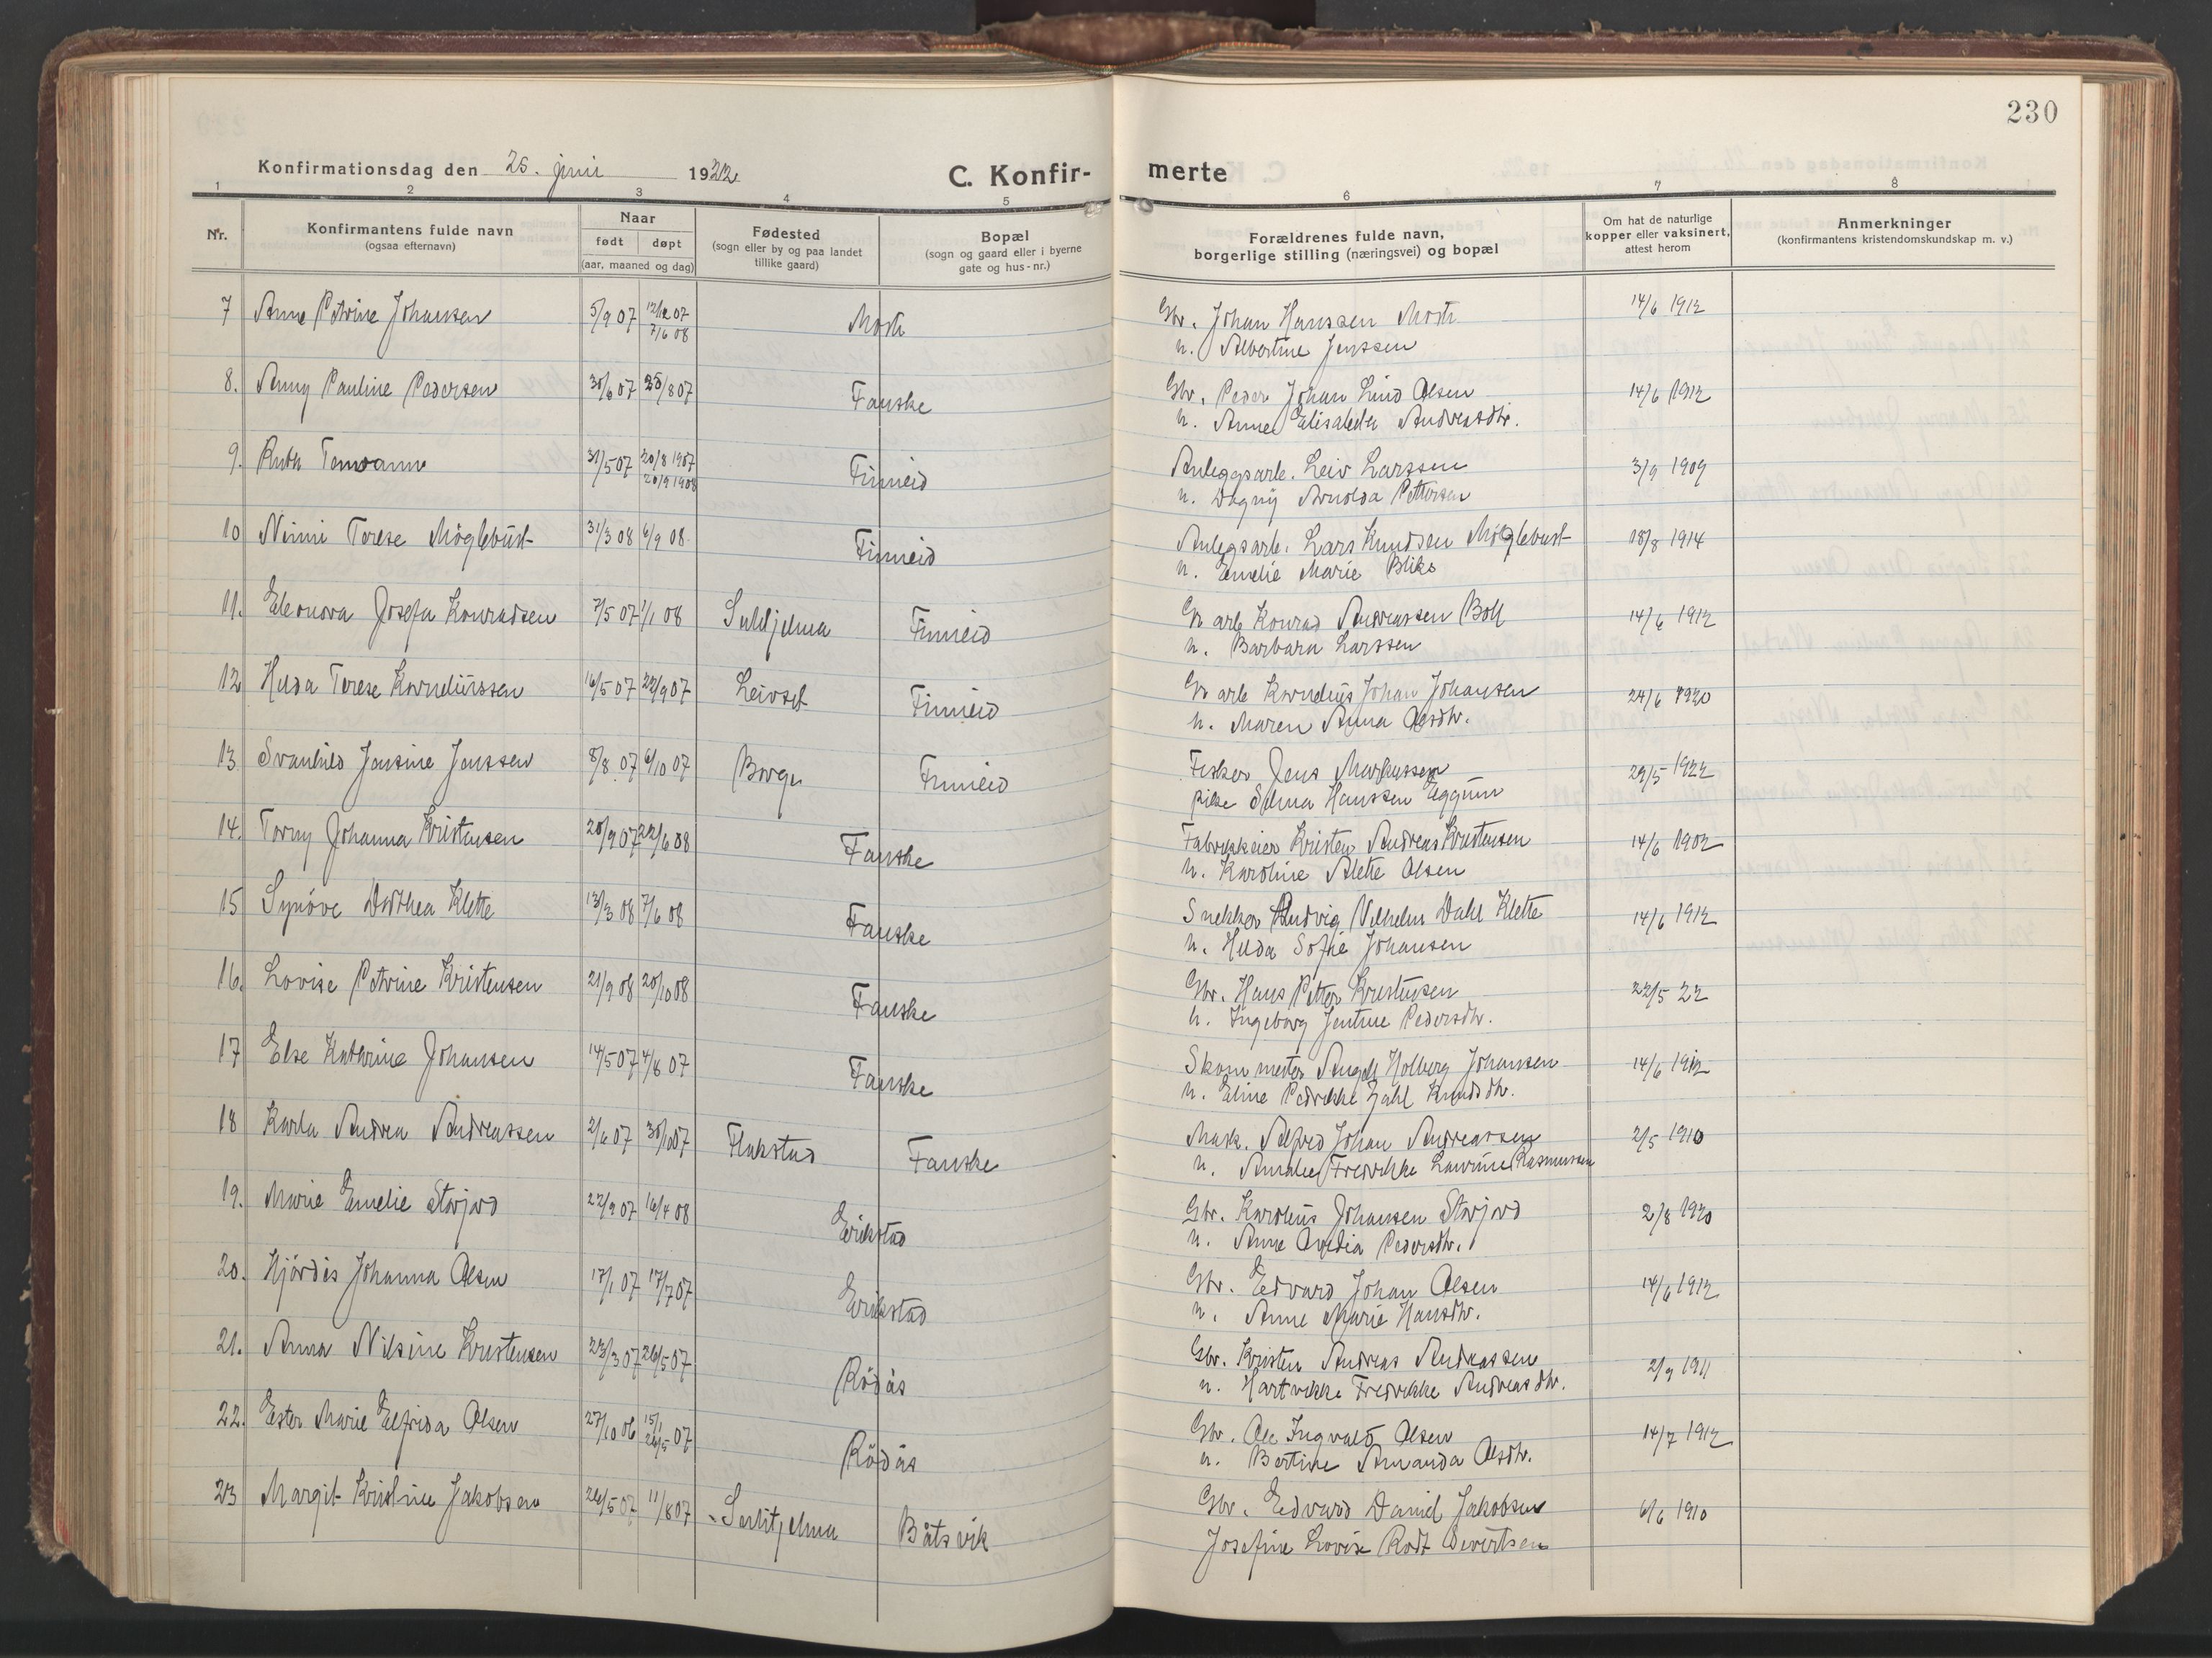 230
Konfirmationsdag den 25. juni 1922
C. Konfir-
merte
1 2 3 4 5 6 7 8
Nr.
Konfirmantens fulde navn
(ogsaa efternavn)
Naar
født døpt
(aar, maaned og dag)
Fødested
(sogn eller by og paa landet
tillike gaard)
Bopæl
(sogn og gaard eller i byerne
gate og hus-nr.)
Forældrenes fulde navn,
borgerlige stilling (næringsvei) og bopæl
Om hat de naturlige
kopper eller vaksinert,
attest herom
Anmerkninger
(konfirmantens kristendomskundskap m. v.)
7 Anne Petrine Johansen 5/9 07 7/6 08 Gbr. Johan Hanssen 14/6 1912
h. Albertine Jenssen
8. Anny Pauline Pedersen 30/6 07 25/8 07 Fauske Gbr. Peder Johan Lind Olsen 14/6 1912
h. Anne Elisabeth Andreasdtr.
9. Ruth 31/5 07 20/8 1907 Finneid Anleggsarb. Leiv Larssen 3/9 1909
20/9 1908
h. Dagny Arnolda Pettersen
10 Ninni Terese Möglebust 31/3 08 6/9 08 Finneid Anlegsarb. Lars Knudsen Möglebust 18/8 1914
h. Emelie Marie Bliks
11. Eleonora Josefa Konradsen 7/5 07 1/1 08 Sulitjelma Finneid Gr arb Konrad Andreassen Boll 14/6 1912
h. Barbara Larssen
12 Hilda Terese Korneliussen 16/5 07 22/9 07 Leivset Finneid Gr arb Kornelius Johan Johansen 24/6 1920
h. Maren Anna Olsdtr.
13 Svanhild Jensine Jenssen 8/8 07 6/10 07 Borge Finneid Fisker Jens Markussen 29/5 1922
pike Selma Hanssen Eggum
14. Torny Johanna Kristensen 20/9 07 22/6 08 Fauske Fabrikkeier Kristen Andreas Kristensen 14/6 1902
h. Karoline Alette Olsen
15 Synöve Dorthea Klette 13/3 08 7/6 08 Fauske Snekker Ludvig Vilhelm Dahl Klette 14/6 1912
h. Hilda Sofie Johansen
16. Lovise Petrine Kristensen 21/9 08 20/10 08 Fauske Gbr. Hans Petter Kristensen 22/5 22
h. Ingeborg Jentine Pedersdtr.
17 Else Kathrine Johansen 14/5 07 4/8 07 Fauske Skom mester Angell Holberg Johansen 14/6 1912
h. Eline Pedrikke Zahl Knudsdtr.
18 Karla Andrea Andreassen 2/6 07 30/6 07 Flakstad Fauske Mask. Alfred Johan Andreassen 2/5 1910
h. Amalie Fredrikke Laurine Rasmussen
19. Marie Emelie Storjord 22/9 07 16/4 08 Erikstad Gbr. Karolius Johansen Storjord 2/8 1920
h. Anne Ovedia Pedersdtr.
20. Hjördis Johanna Olsen 17/1 07 17/7 07 Erikstad Gbr. Edvard Johan Olsen 14/6 1912
h. Anne Marie Hansdtr.
21. Anna Nilsine Kristensen 23/3 07 26/5 07 Rödås Gbr. Kristen Andreas Andreassen 2/9 1911
h. Hartvikke Fredrikke Andreasdtr.
22. Ester Marie Elfrida Olsen 27/10 06 15/1 Rödås Gbr. Ole Ingvald Olsen 14/7 1912
26/5 07
h. Bertine Amanda Olsdtr.
23 Margit Kristine Jakobsen 26/5 07 11/8 07 Sulitjelma Båtsvik Gbr. Edvard Daniel Jakobsen 6/6 1910
Josefine Lovise Rodt Sivertsen